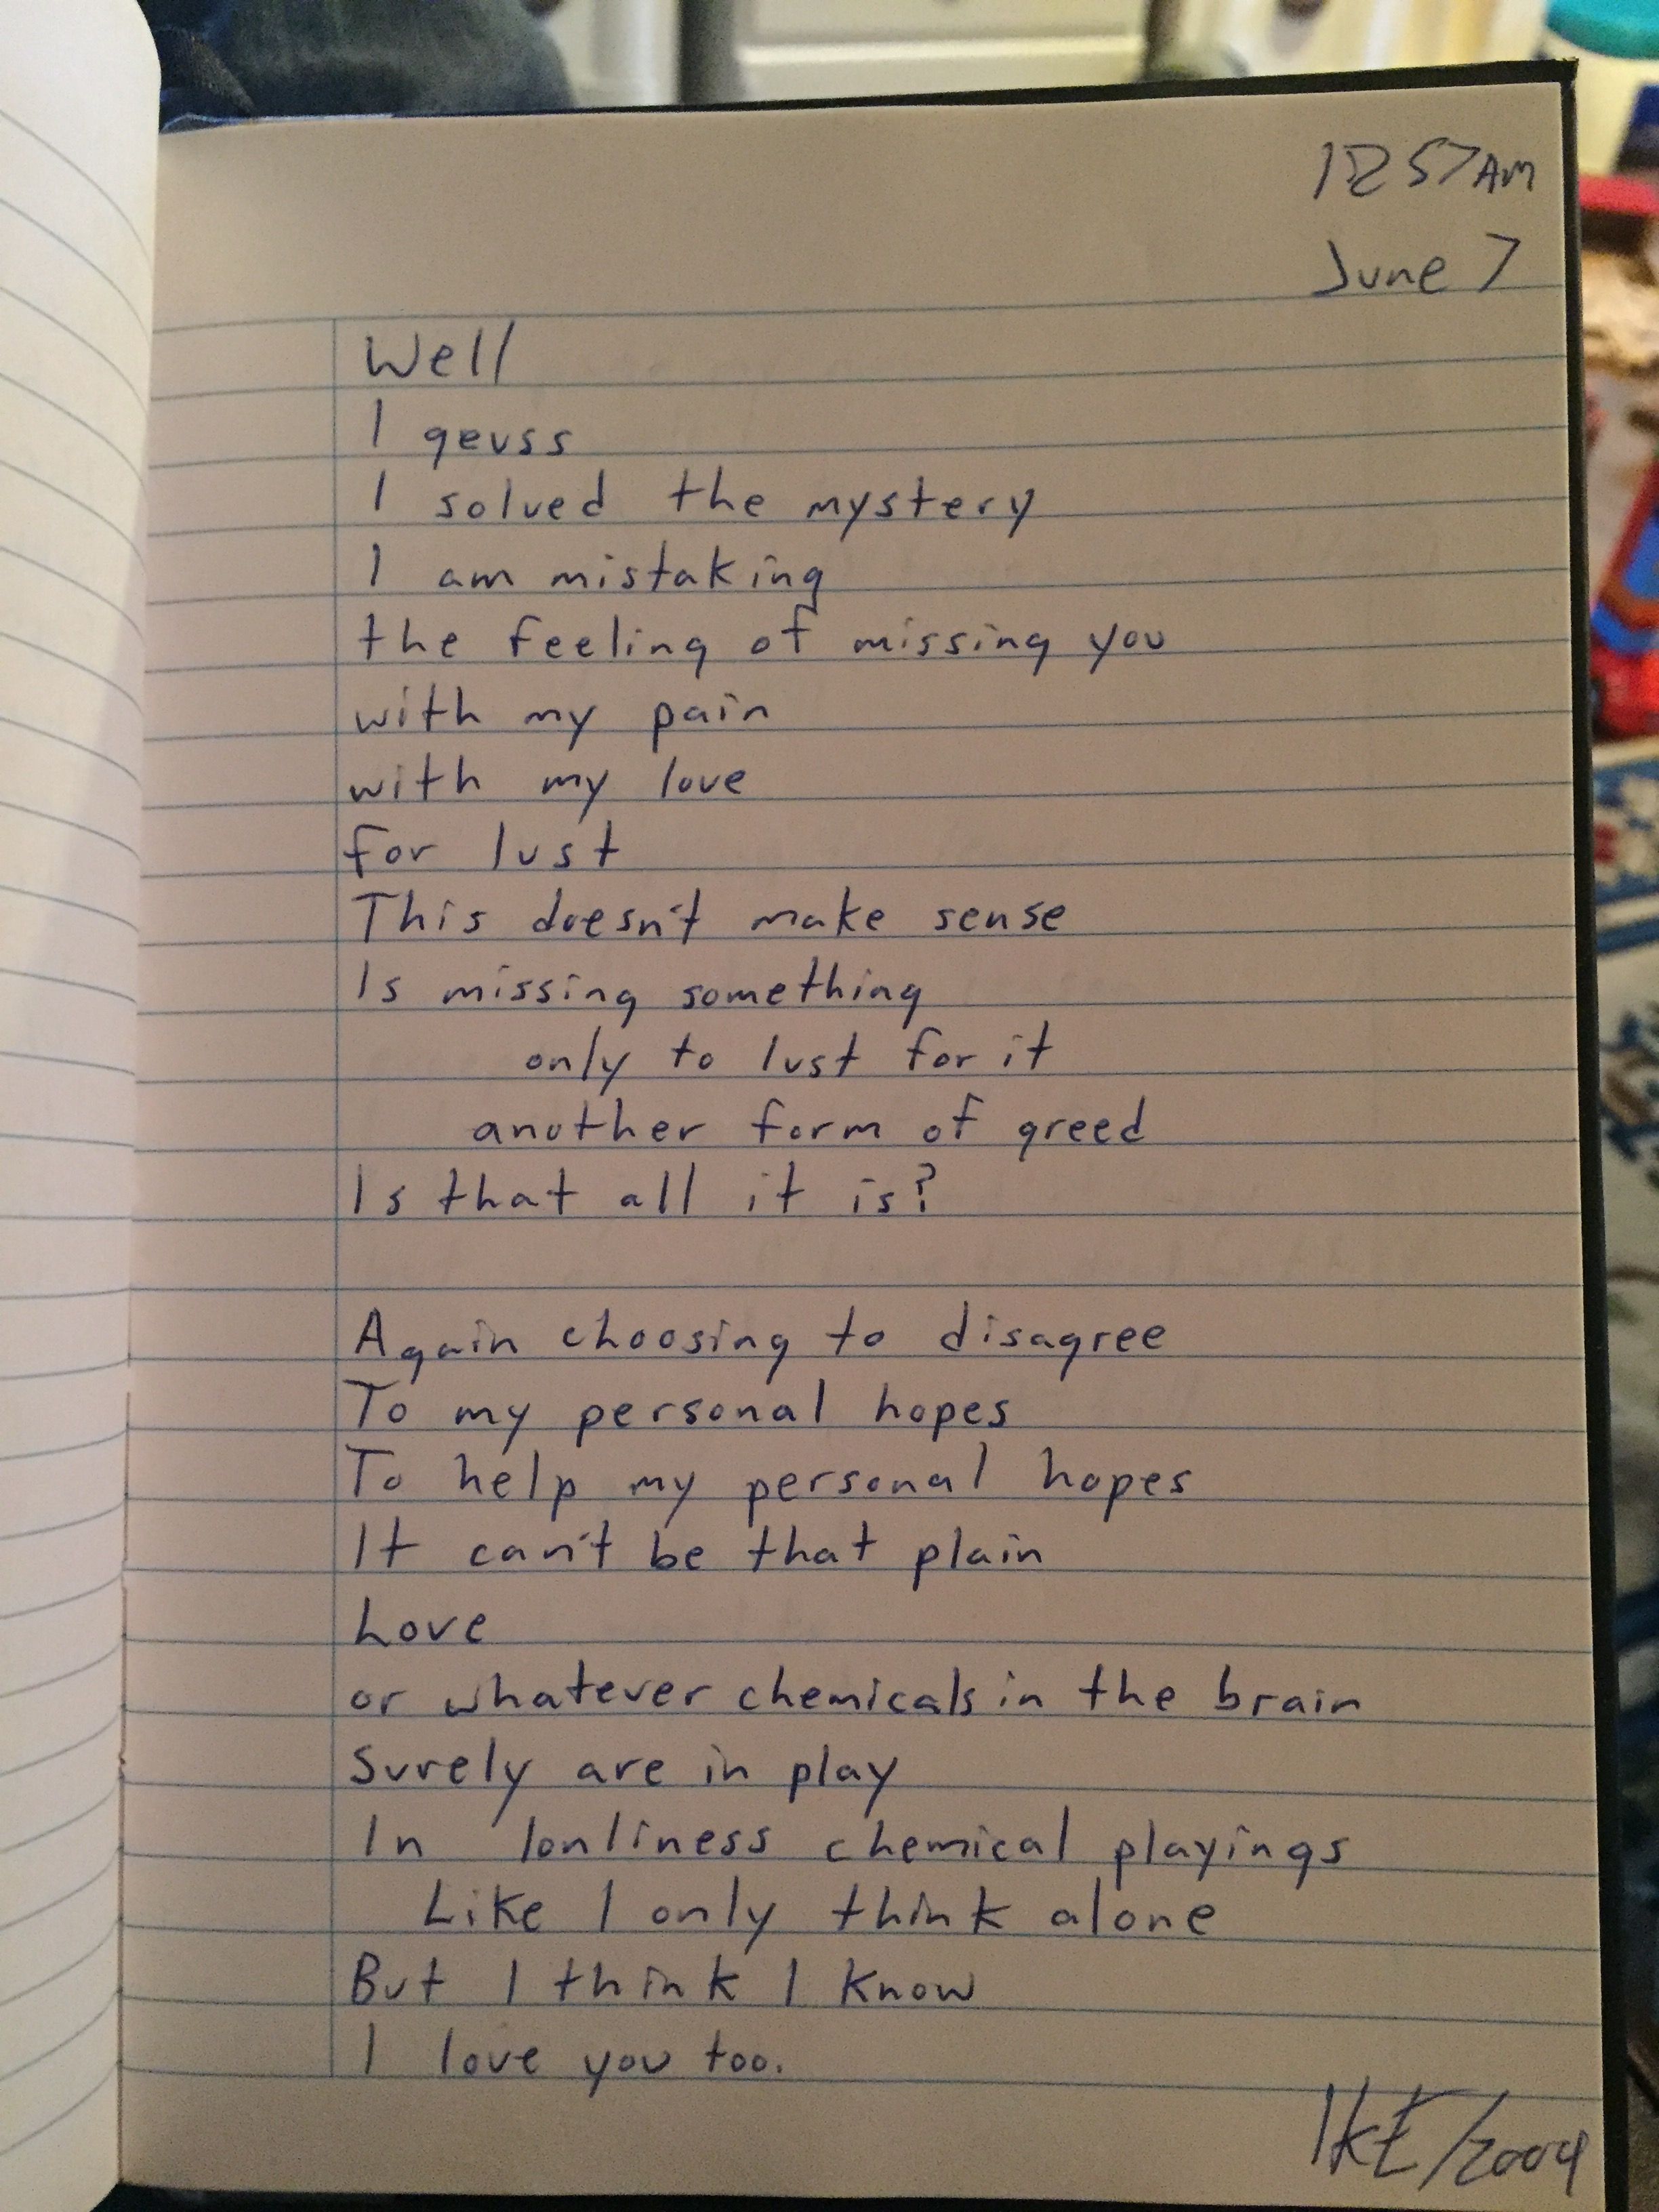 12 57 AM
June 7
Well
I geuss
I solved the mystery
I am mistaking
the feeling of missing you
with my pain
with my love
for lust
This doesn't make sense
Is missing something
only to lust for it
another form of greed
Is that all it is?
Again choosing to disagree
To my personal hopes
To help my personal hopes
It can't be that plain
Love
or whatever chemicals in the brain
Surely are in play
In lonliness chemical playings
Like I only think alone
But I think I know
I love you too.
/2004